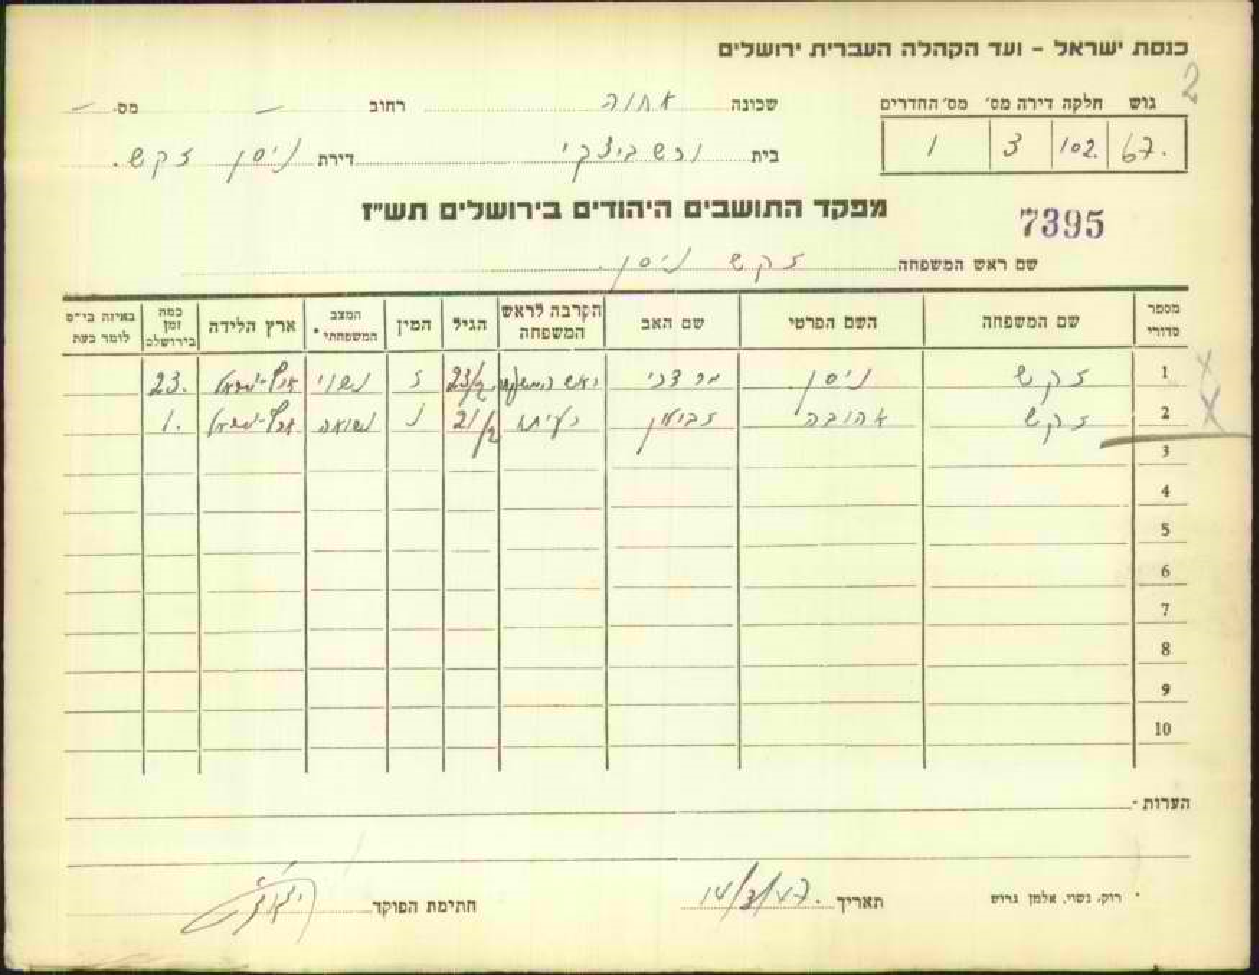 כנסת ישראל – ועד הקהלה העברית ירושלים
2
גוש חלקה דירה מס׳ מס׳ החדרים
67. 102. 3 1
שכונה אחוה רחוב – מס. –
בית ורשביצקי דירת ניסן זקש.
מפקד התושבים היהודים בירושלים תש"ז
7395
שם ראש המשפחה זקש ניסן.
מספר סדורי שם המשפחה השם הפרטי שם האב הקרבה לראש המשפחה הגיל המין המצב המשפחתי * ארץ הלידה כמה זמן בירושלים באיזה בי"ס לומד כעת
1 זקש ניסן מרדכי ראש המשפחה 23/2 ז נשוי ארץ-ישראל 23.
2 זקש אהובה זבולון רעיתו 21/2 נ נשואה ארץ-ישראל 1.
3
4
5
6
7
8
9
10
הערות -
* רוק, נשוי, אלמן גרוש תאריך 14/3/47. חתימת הפוקד